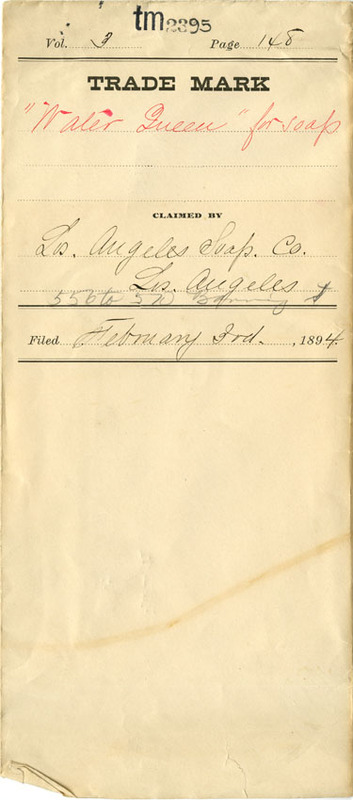 tm2395
Vol. 3 Page 148
TRADE MARK
"Water Queen" for soap
CLAIMED BY
Los. Angeles Soap. Co.
Los. Angeles
Filed February 3rd. , 1894.